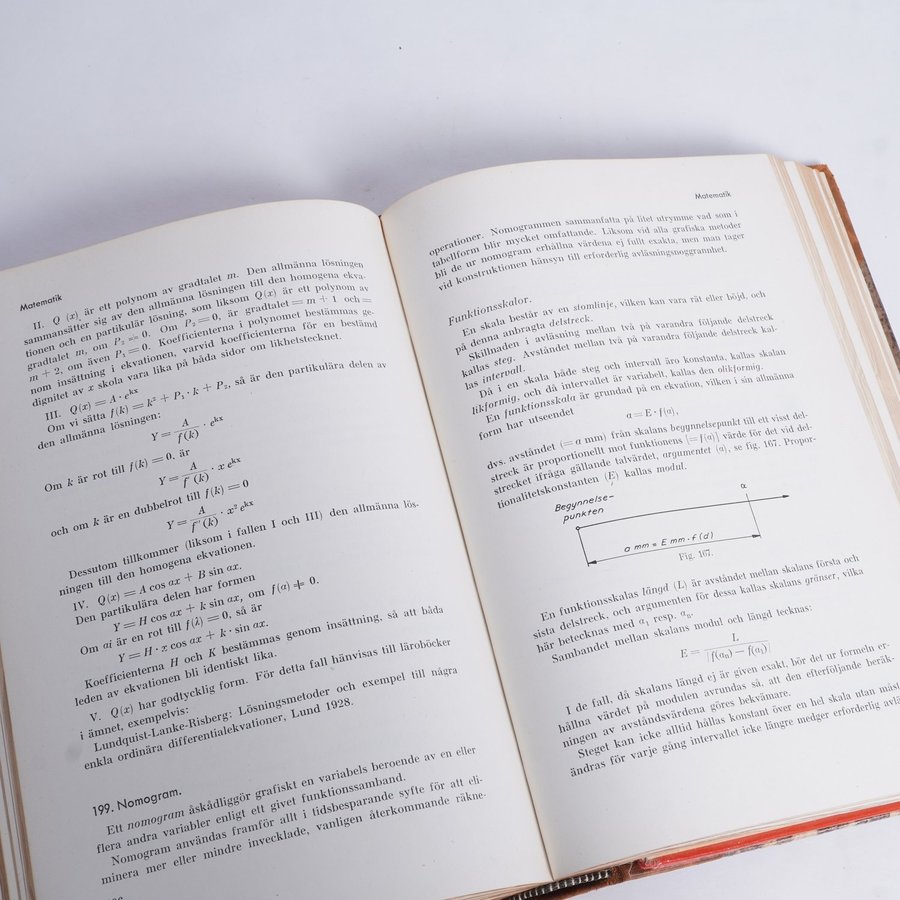 Matematik
II. Q (x) är ett polynom av gradtalet m. Den allmänna lösningen
sammansätter sig av den allmänna lösningen till den homogena ekva-
tionen och en partikulär lösning, som liksom Q(x) är ett polynom av
gradtalet m, om P₂ ≠ 0. Om P₂ = 0, är gradtalet = m + 1 och =
m + 2, om även P₁ = 0. Koefficienterna i polynomet bestämmas ge-
nom insättning i ekvationen, varvid koefficienterna för en bestämd
dignitet av x skola vara lika på båda sidor om likhetstecknet.
III. Q(x) = A · eᵏˣ
Om vi sätta f(k) = k² + P₁ · k + P₂, så är den partikulära delen av
den allmänna lösningen:
Y = A / f(k) · eᵏˣ
Om k är rot till f(k) = 0, är
Y = A / f'(k) · x eᵏˣ
och om k är en dubbelrot till f(k) = 0
Y = A / f''(k) · x² eᵏˣ
Dessutom tillkommer (liksom i fallen I och III) den allmänna lös-
ningen till den homogena ekvationen.
IV. Q(x) = A cos ax + B sin ax.
Den partikulära delen har formen
Y = H cos ax + k sin ax, om f(a) ≠ 0.
Om ai är en rot till f(λ) = 0, så är
Y = H · x cos ax + k · sin ax.
Koefficienterna H och K bestämmas genom insättning, så att båda
leden av ekvationen bli identiskt lika.
V. Q(x) har godtycklig form. För detta fall hänvisas till läroböcker
i ämnet, exempelvis:
Lundquist-Lanke-Risberg: Lösningsmetoder och exempel till några
enkla ordinära differentialekvationer, Lund 1928.
199. Nomogram.
Ett nomogram åskådliggör grafiskt en variabels beroende av en eller
flera andra variabler enligt ett givet funktionssamband.
Nomogram användas framför allt i tidsbesparande syfte för att eli-
minera mer eller mindre invecklade, vanligen återkommande räkne-
Matematik
operationer. Nomogrammen sammanfatta på litet utrymme vad som i
tabellform blir mycket omfattande. Liksom vid alla grafiska metoder
bli de ur nomogram erhållna värdena ej fullt exakta, men man tager
vid konstruktionen hänsyn till erforderlig avläsningsnoggrannhet.
Funktionsskalor.
En skala består av en stomlinje, vilken kan vara rät eller böjd, och
på denna anbragta delstreck.
Skillnaden i avläsning mellan två på varandra följande delstreck
kallas steg. Avståndet mellan två på varandra följande delstreck kal-
las intervall.
Då i en skala både steg och intervall äro konstanta, kallas skalan
likformig, och då intervallet är variabelt, kallas den olikformig.
En funktionsskala är grundad på en ekvation, vilken i sin allmänna
form har utseendet
a = E · f(α),
dvs. avståndet (= a mm) från skalans begynnelsepunkt till ett visst del-
streck är proportionellt mot funktionens [= f(α)] värde för det vid del-
strecket ifråga gällande talvärdet, argumentet (α), se fig. 167. Propor-
tionalitetskonstanten (E) kallas modul.
Begynnelse-
punkten
α
a mm = E mm · f (d)
Fig. 167.
En funktionsskalas längd (L) är avståndet mellan skalans första och
sista delstreck, och argumenten för dessa kallas skalans gränser, vilka
här betecknas med α₁ resp. αₙ.
Sambandet mellan skalans modul och längd tecknas:
E = L / |f(αₙ) − f(α₁)|
I de fall, då skalans längd ej är given exakt, bör det ur formeln er-
hållna värdet på modulen avrundas så, att den efterföljande beräk-
ningen av avståndsvärdena göres bekvämare.
Steget kan icke alltid hållas konstant över en hel skala utan måst
ändras för varje gång intervallet icke längre medger erforderlig avlä